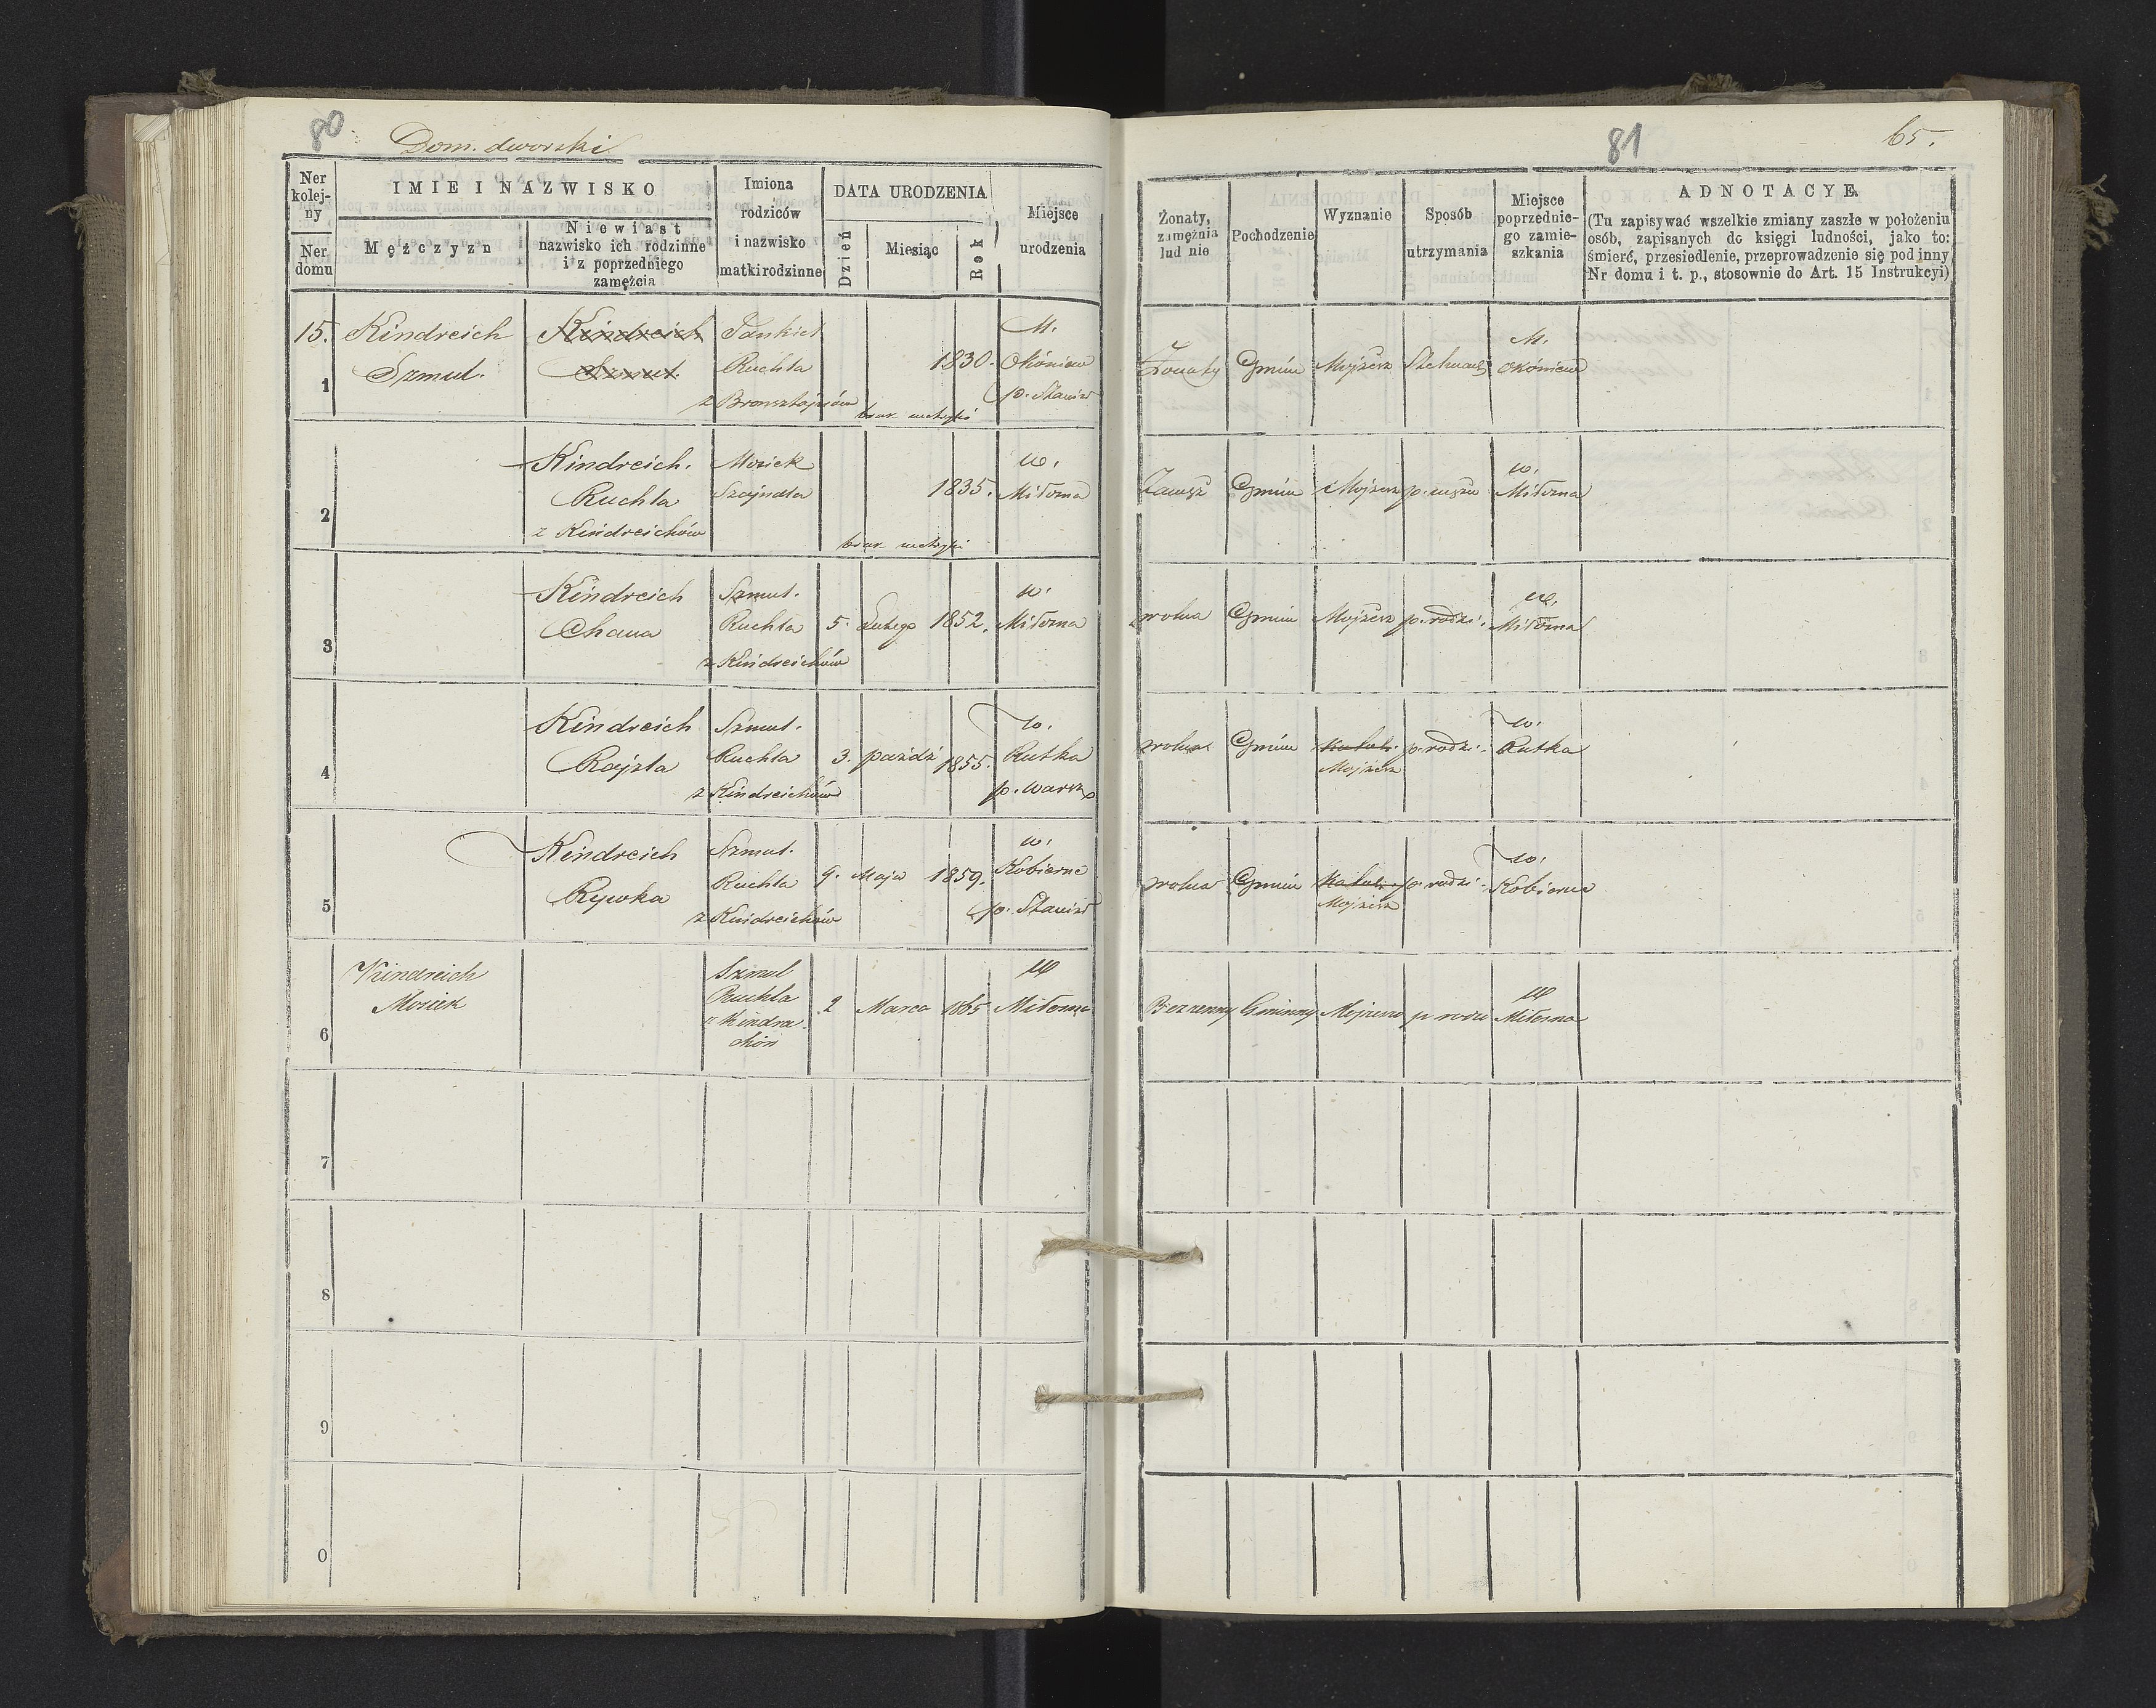 80
Dom. dworski
Ner kolejny
Ner domu
IMIE I NAZWISKO
Mężczyzn
Niewiast
nazwisko ich rodzinne
i z poprzedniego
zamężcia
Imiona
rodziców
i nazwisko
matki rodzinne
DATA URODZENIA
Dzień
Miesiąc
Rok
Miejsce
urodzenia
15.
1
Kindreich
Szmul.
Kindreich
Szmul.
Jankiel
Ruchla
z Bronsztajnów
1830.
brak metryki
M.
Okóniew
p. Stanisł
2
Kindreich.
Ruchla
z Kindreichów
Mosiek
Szajndla
1835.
brak metryki
w.
Miłosna
3
Kindreich
Chana
Szmul.
Ruchla
z Kindreichów
5. Lutego 1852.
w.
Miłosna
4
Kindreich
Rajzla
Szmul.
Ruchla
z Kindreichów
3. paźdź 1855.
w.
Rutka
p. Warsz
5
Kindreich
Rywka
Szmul.
Ruchla
z Kindreichów
9. Maja 1859.
w.
Kobierne
p. Stanisł
6
Kindreich
Mosiek
Szmul
Ruchla
z Kindra
chów
2 Marca 1865
W
Miłosna
7
8
9
0
81
65.
Żonaty,
zamężnia
lud nie
Pochodzenie
Wyznanie
Sposób
utrzymania
Miejsce
poprzednie-
go zamie-
szkania
ADNOTACYE.
(Tu zapisywać wszelkie zmiany zaszłe w położeniu
osób, zapisanych do księgi ludności, jako to:
śmierć, przesiedlenie, przeprowadzenie się pod inny
Nr domu i t. p., stosownie do Art. 15 Instrukcyi)
Żonaty Gmin Mojżesz
M.
Okóniew
Zamęż Gmin Mojżesz p. mężu
w.
Miłosna
wolna Gmin Mojżesz p. rodzi.
w.
Miłosna
wolna Gmin Katol. p. rodzi.
Mojżesz
w.
Rutka
wolna Gmin Katol. p. rodzi.
Mojżesz
w.
Kobierne
Bezżenny Gminny Mojżesz p rodz
W
Miłosna